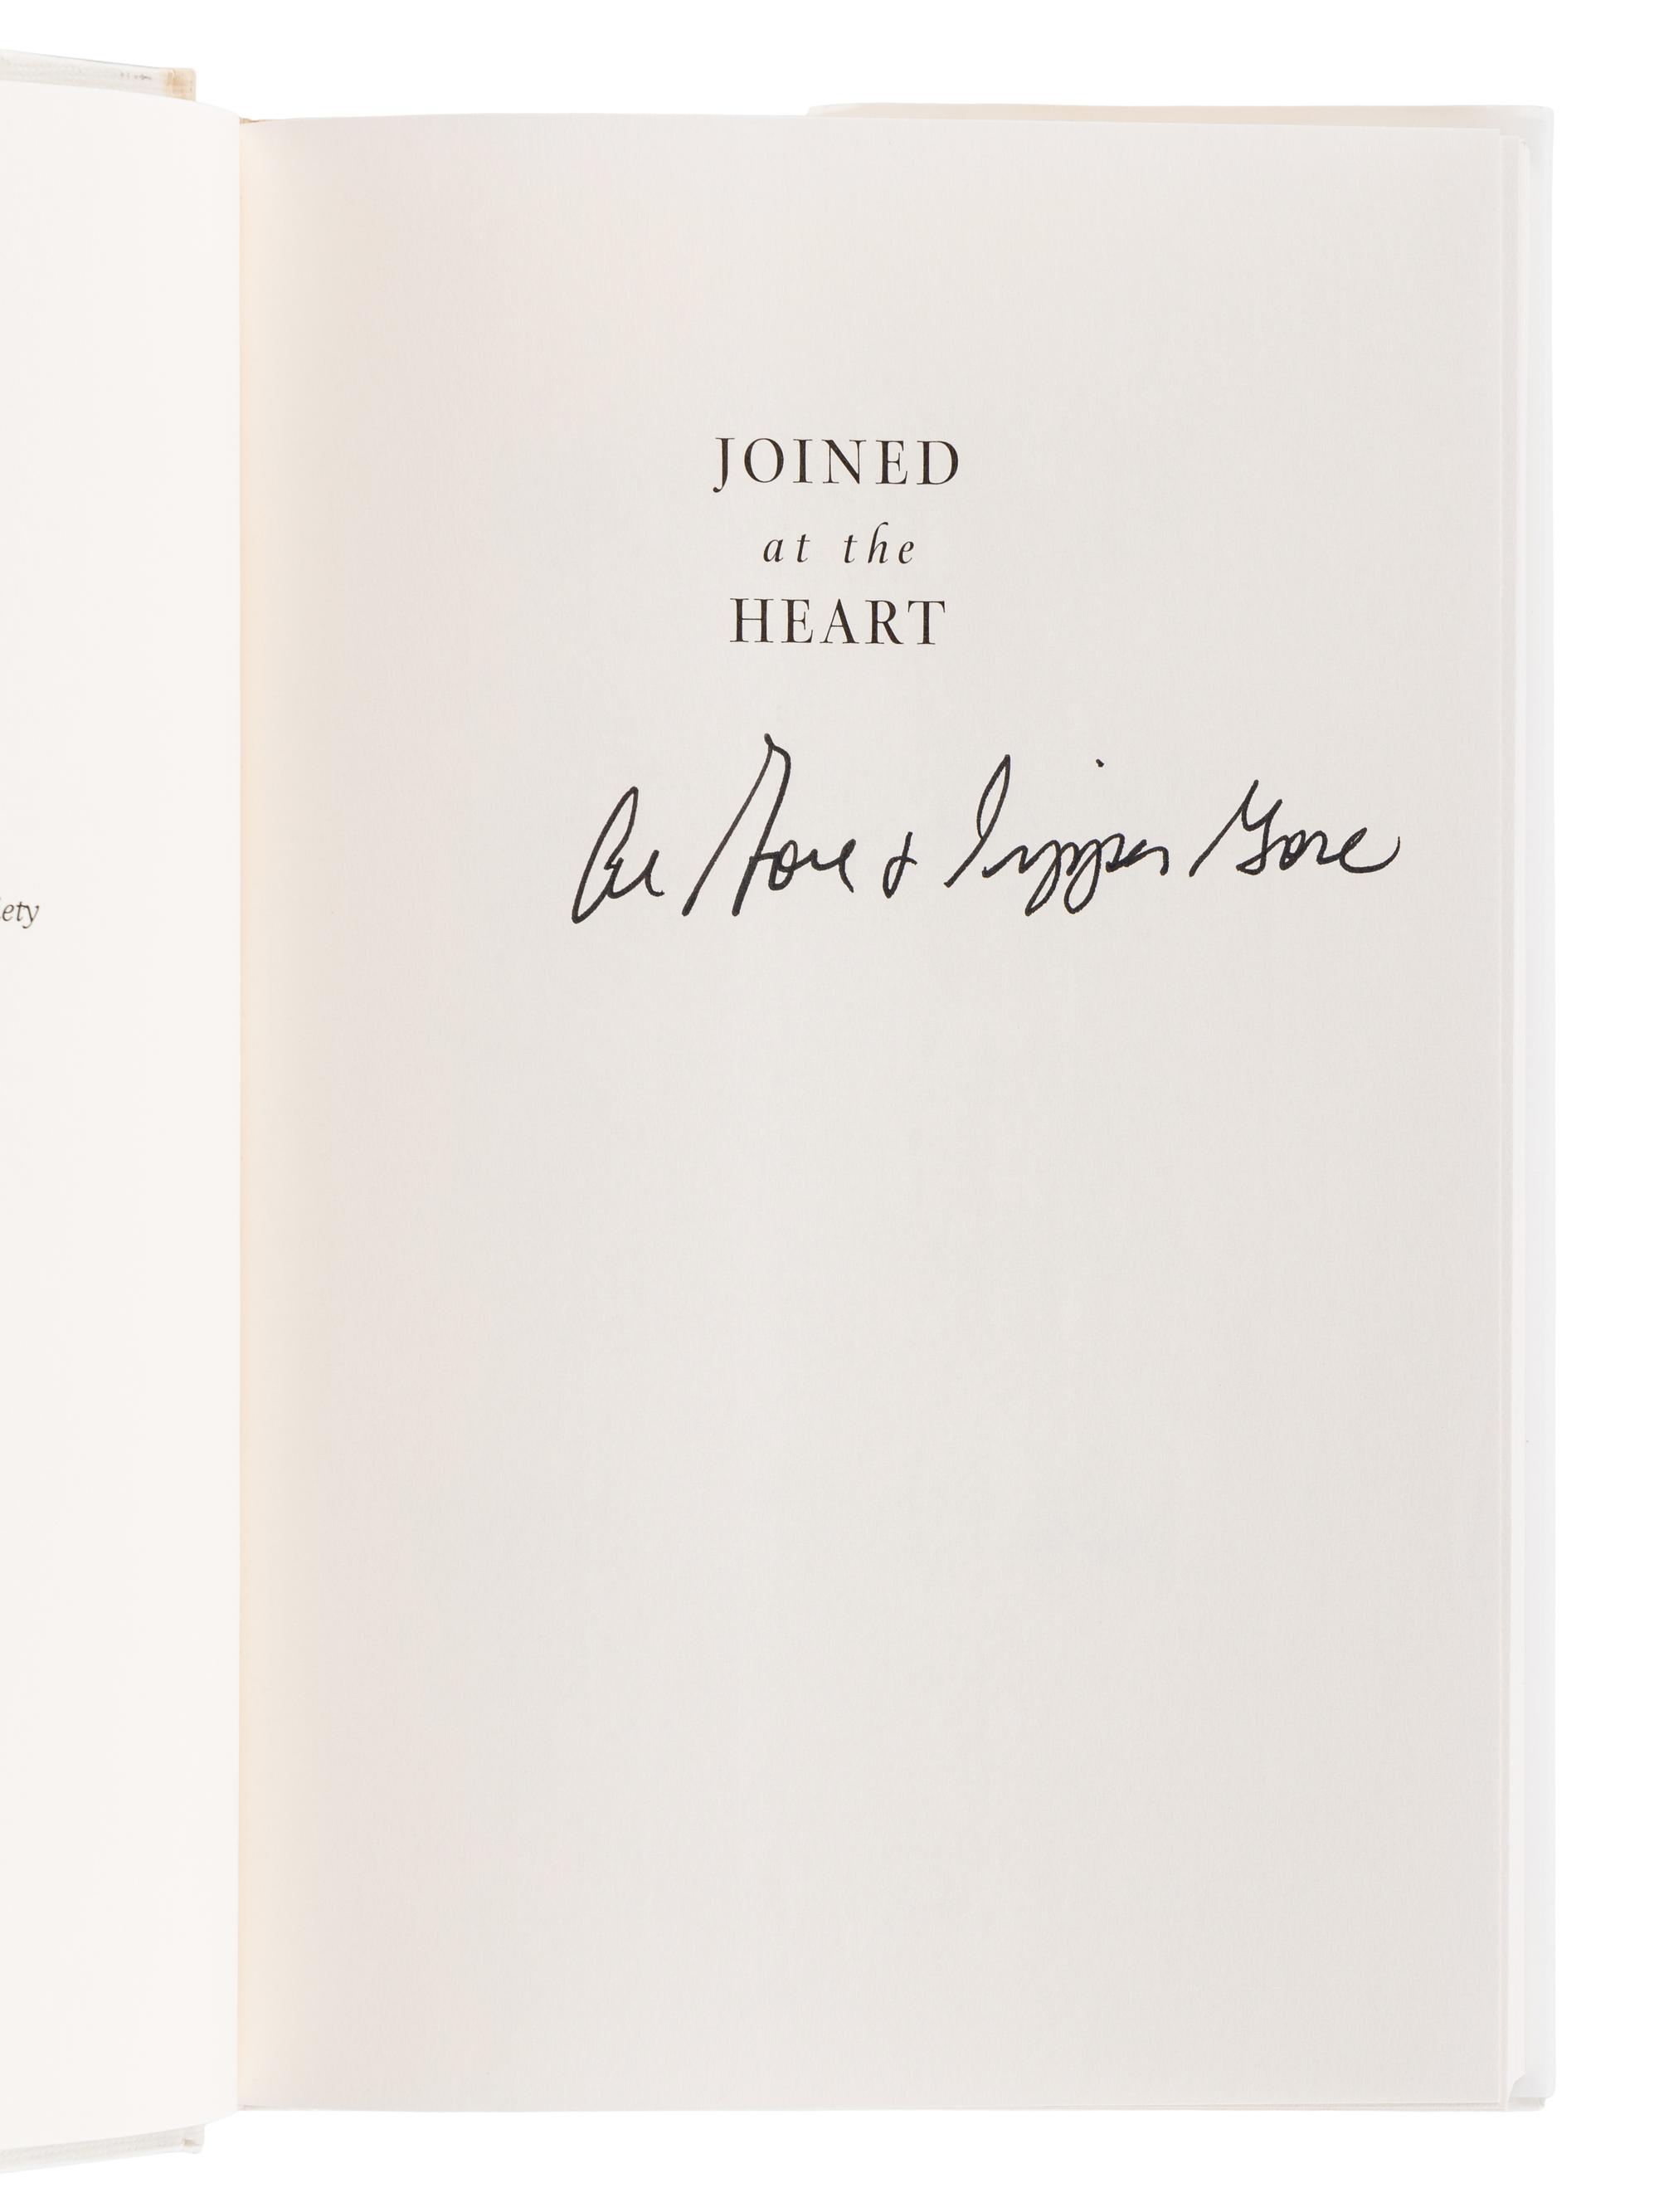 JOINED
at the
HEART
Al Gore & Tipper Gore
ety